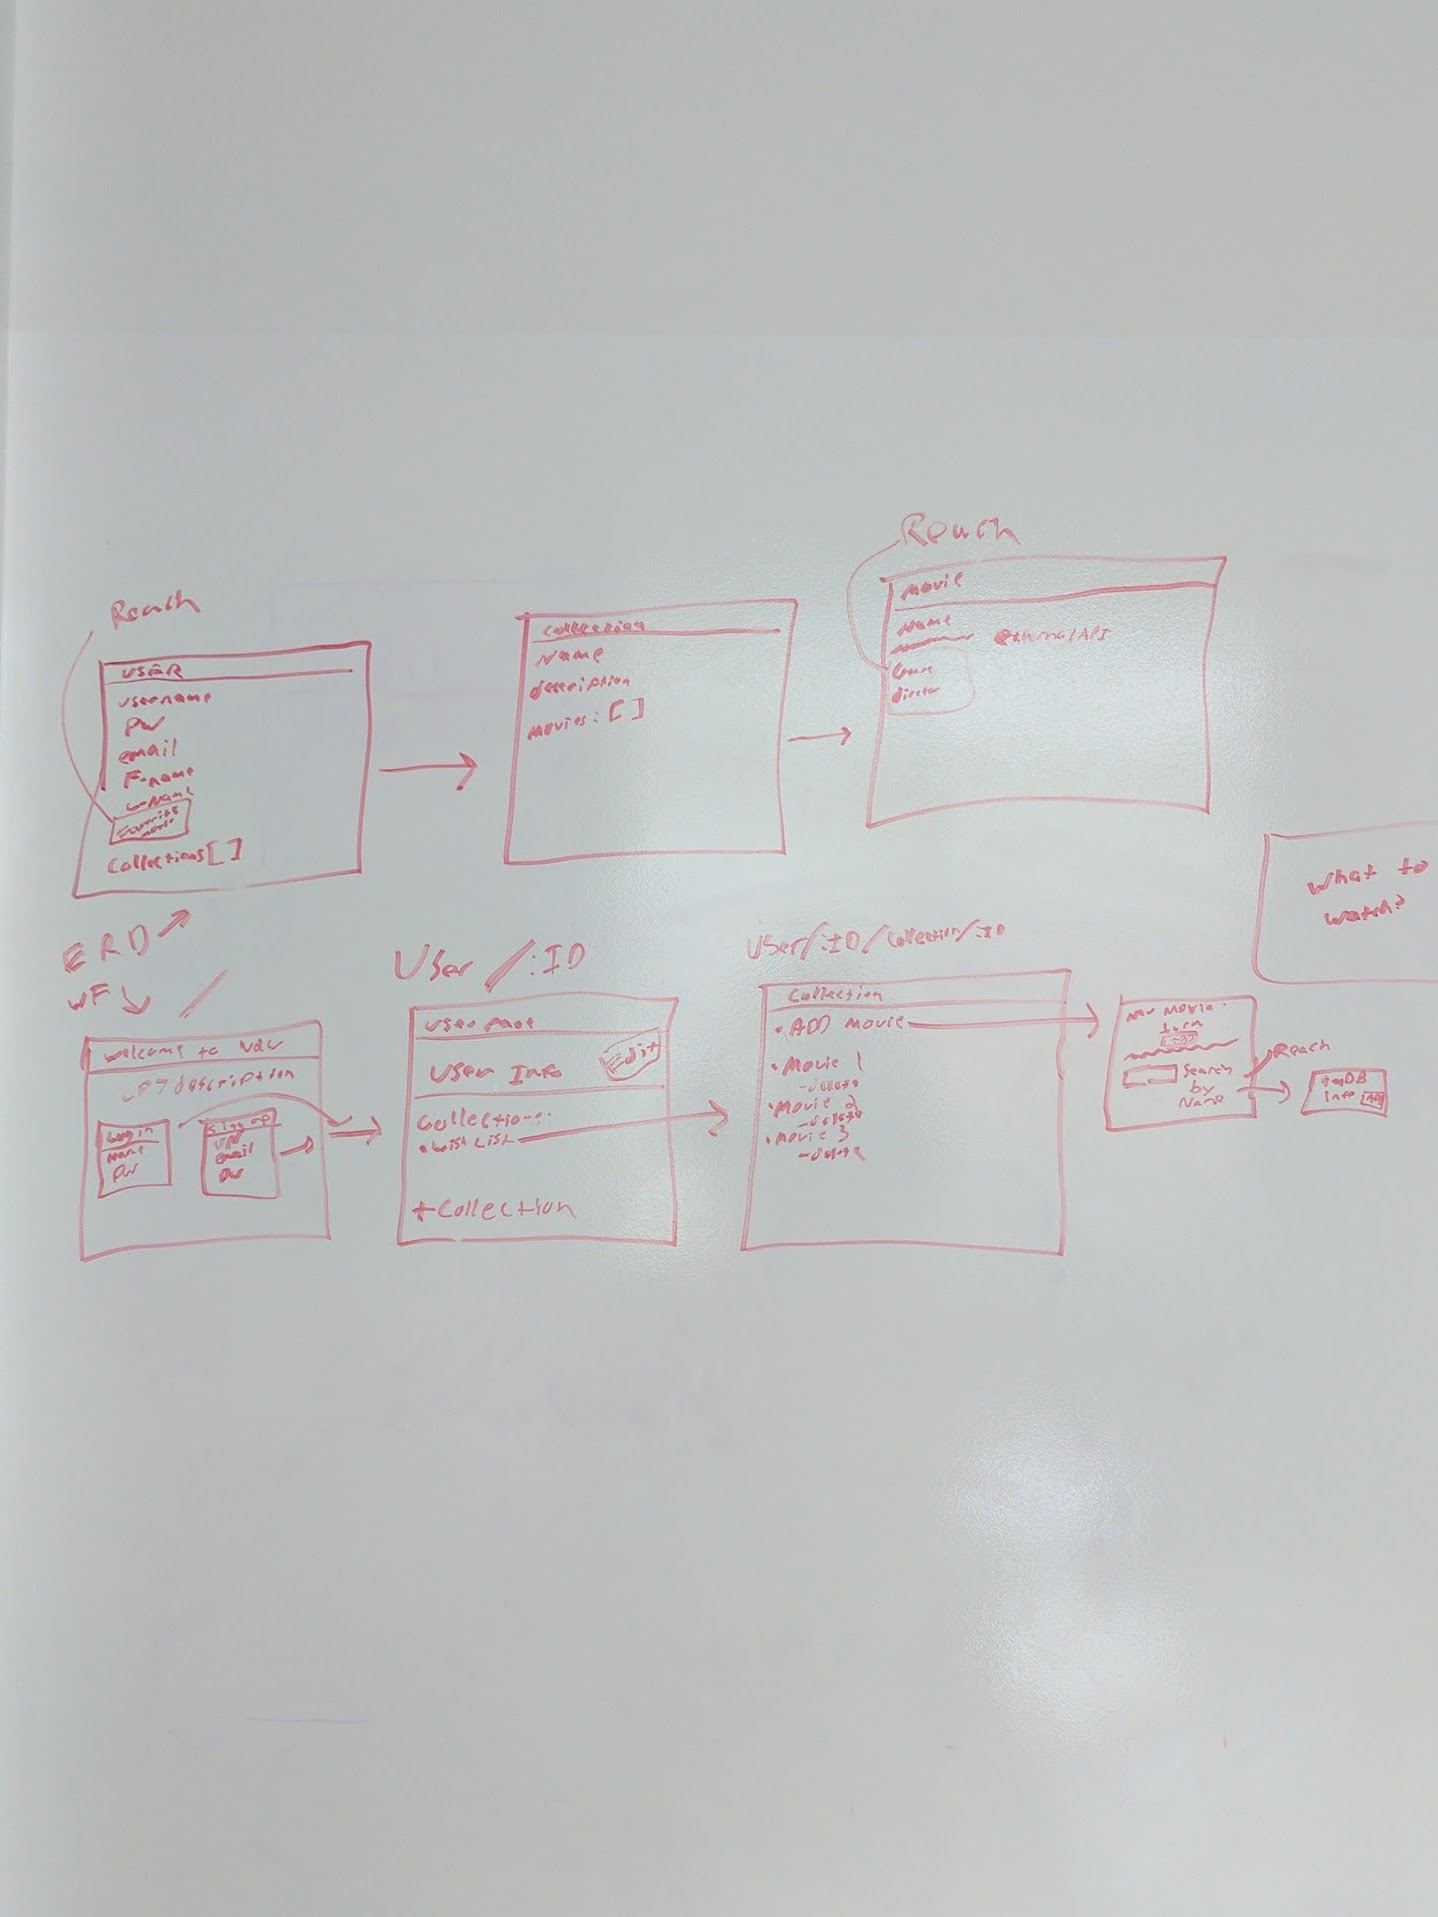 Reach
USER
username
PW
email
F-name
L-Name
Favorite
movie
Collections[ ]
Collection
Name
description
movies: [ ]
Reach
Movie
Name
external API
director
What to
watch?
ERD
WF
/
Welcome to W2W
description
Login
Name
PW
Sign up
UN
email
PW
User /:ID
User Page
User Info
Edit
Collections:
• Wish List
+Collection
User/:ID/Collection/:ID
Collection
• ADD Movie
• Movie 1
- delete
• Movie 2
- delete
• Movie 3
- delete
Movie
form
Search
by
Name
Reach
Info